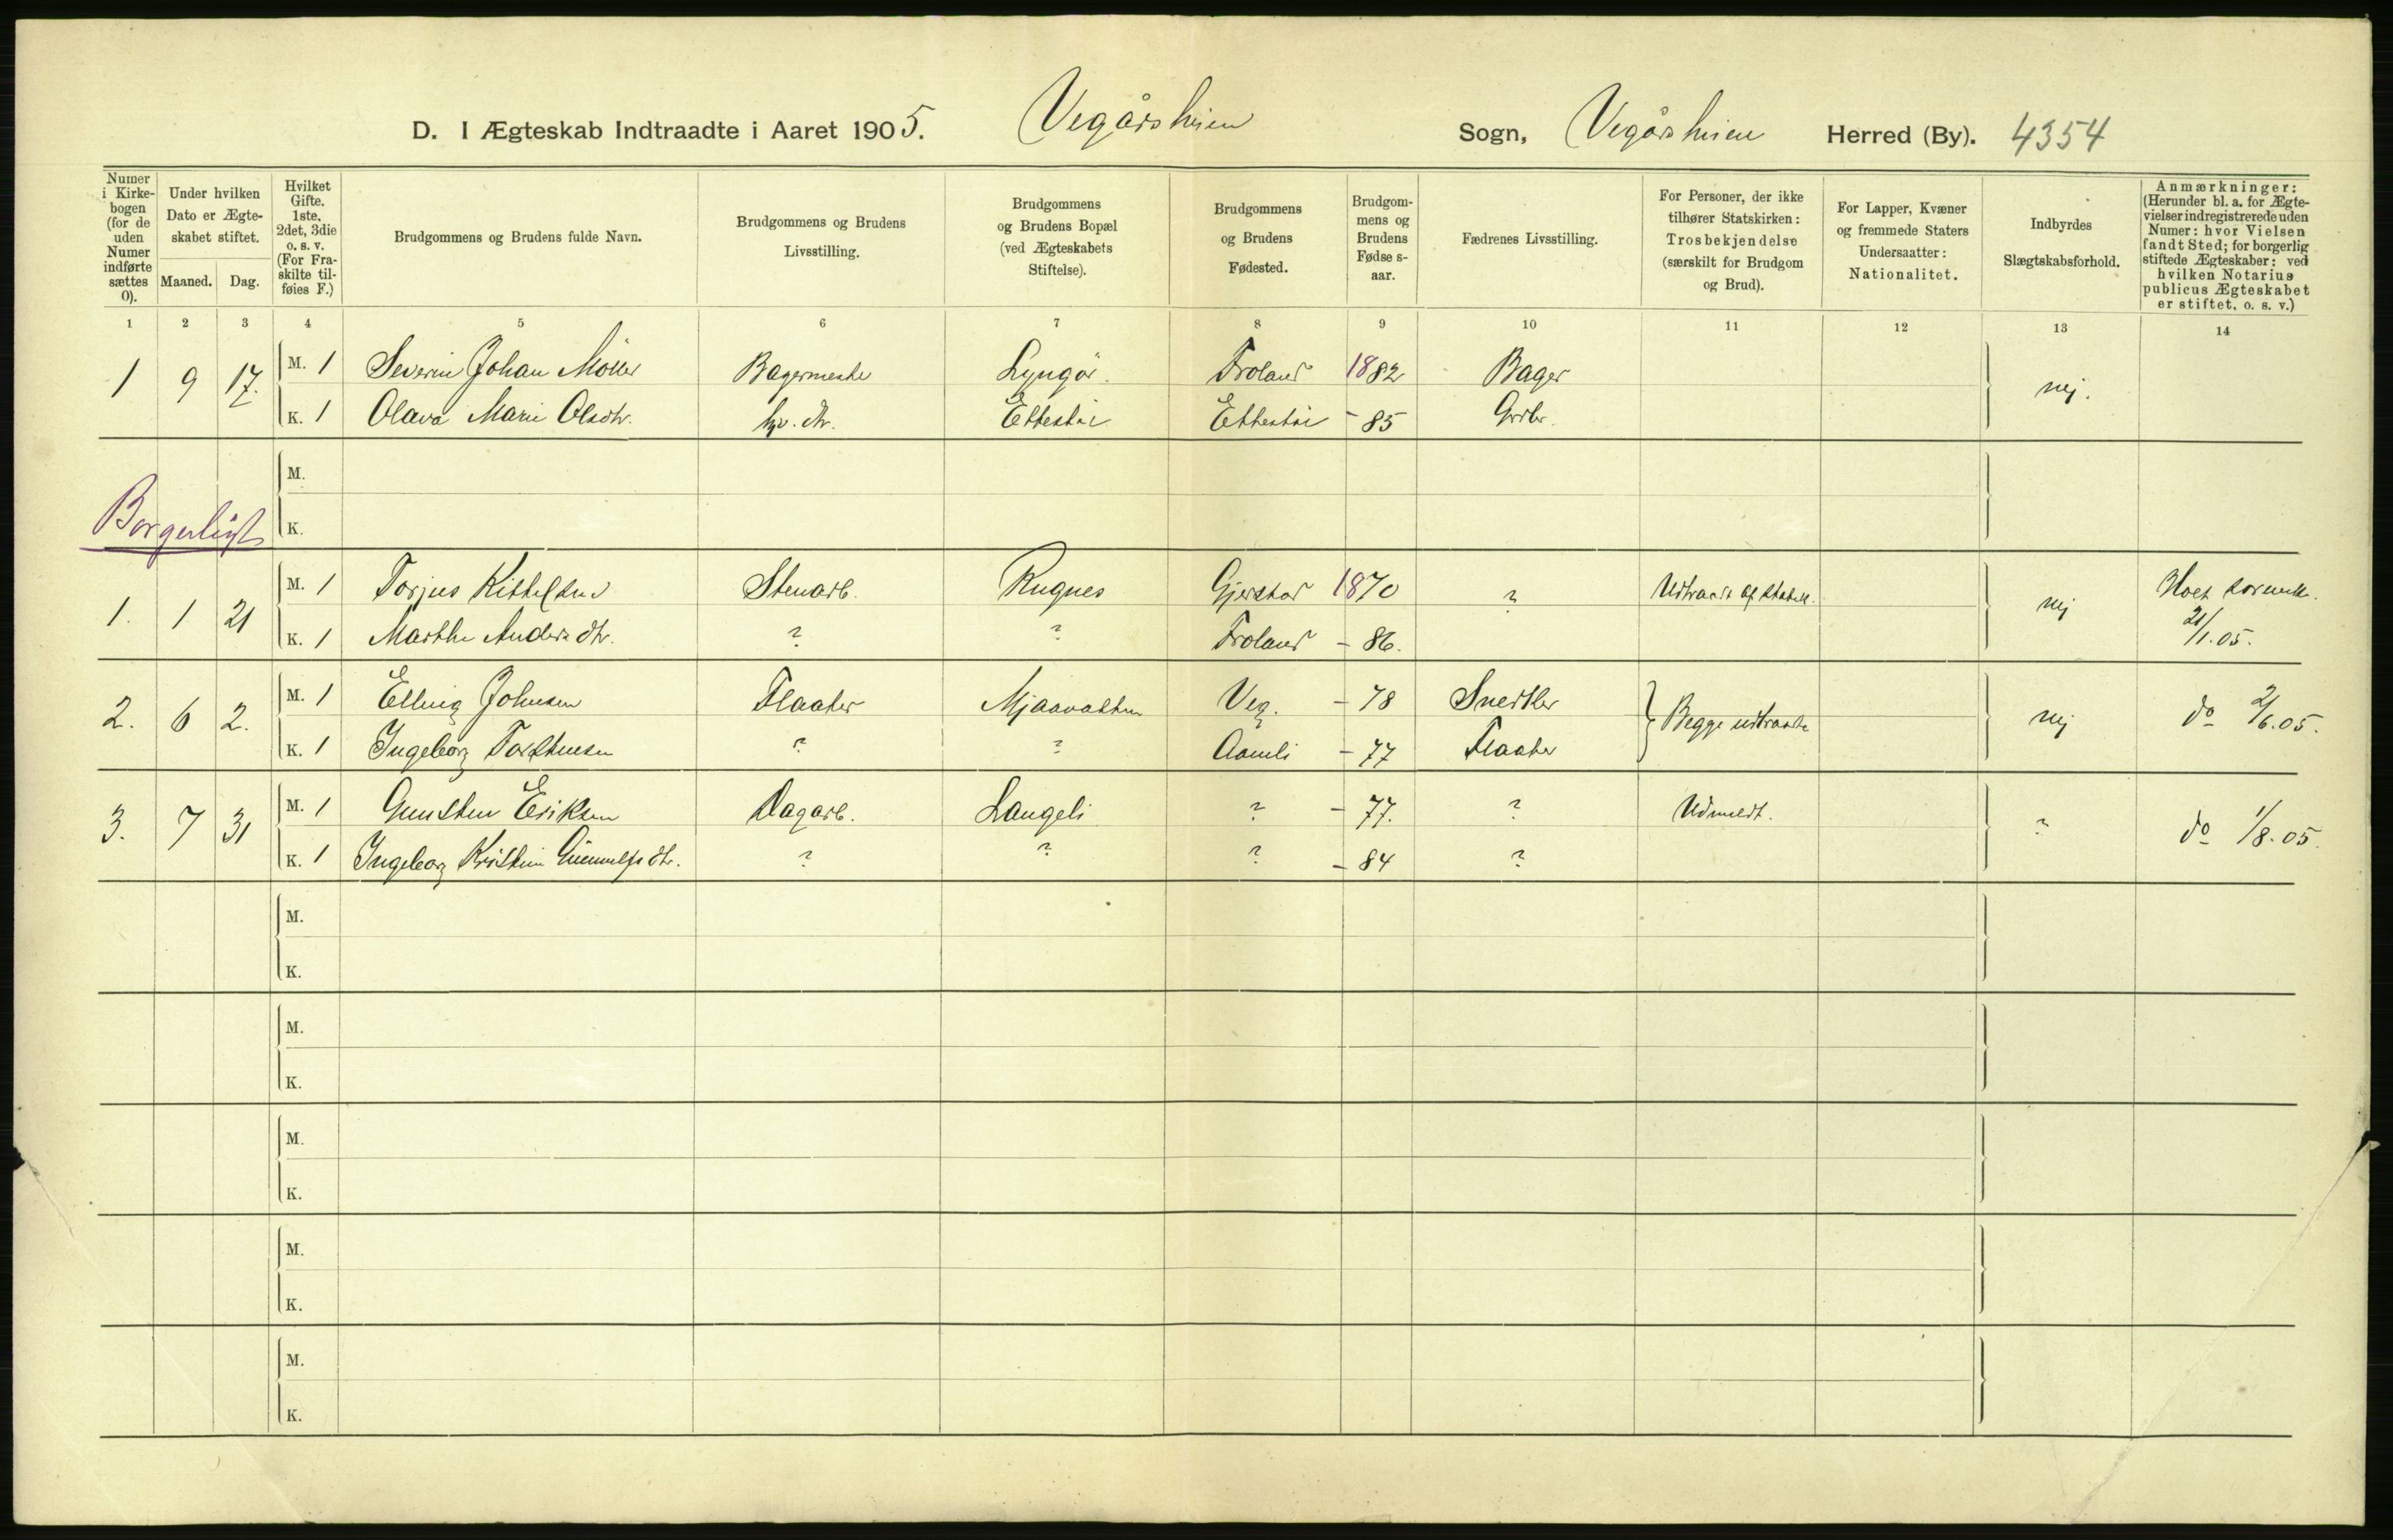 D. I Ægteskab Indtraadte i Aaret 1905. Vegårsheien Sogn, Vegårsheien Herred (By). 4354
Numer i Kirkebogen (for de uden Numer indførte sættes 0).
Under hvilken Dato er Ægteskabet stiftet.
Maaned. Dag.
Hvilket Gifte. 1ste, 2det, 3die o. s. v. (For Fraskilte tilføies F.)
Brudgommens og Brudens fulde Navn.
Brudgommens og Brudens Livsstilling.
Brudgommens og Brudens Bopæl (ved Ægteskabets Stiftelse).
Brudgommens og Brudens Fødested.
Brudgommens og Brudens Fødse s-aar.
Fædrenes Livsstilling.
For Personer, der ikke tilhører Statskirken: Trosbekjendelse (særskilt for Brudgom og Brud).
For Lapper, Kvæner og fremmede Staters Undersaatter: Nationalitet.
Indbyrdes Slægtskabsforhold.
Anmærkninger: (Herunder bl. a. for Ægtevielser indregistrerede uden Numer: hvor Vielsen fandt Sted; for borgerlig stiftede Ægteskaber: ved hvilken Notarius publicus Ægteskabet er stiftet, o. s. v.)
1 2 3 4 5 6 7 8 9 10 11 12 13 14
1 9 17. M. 1 Severin Johan Möller Bagermester Lyngör. Froland 1882 Bager nej.
K. 1 Olava Marie Olsdtr. Ettestöl Ettestöl - 85 Grdbr.
M.
Borgerligt K.
1. 1 21 M. 1 Torjus Kittelsen Stenarb. Rugnes Gjerstad 1870 ? Udtraadt af Statsk. nej
K. 1 Marthe Andersdtr. ? ? Froland - 86. 21/1.05.
2. 6 2. M. 1 Elling Johnsen Flaater Mjaavatten Veg. - 78 Snedker Begge udtraadte nej do 2/6.05.
K. 1 Ingeborg Torstensen ? ? Aamli - 77 Flaater
3. 7 31 M. 1 Gunsten Eriksen Dagarb. Langeli ? - 77. ? Udmeldt. ? do 1/8.05.
K. 1 Ingeborg Kristine Gummelfsdtr. ? ? ? - 84 ?
M.
K.
M.
K.
M.
K.
M.
K.
M.
K.